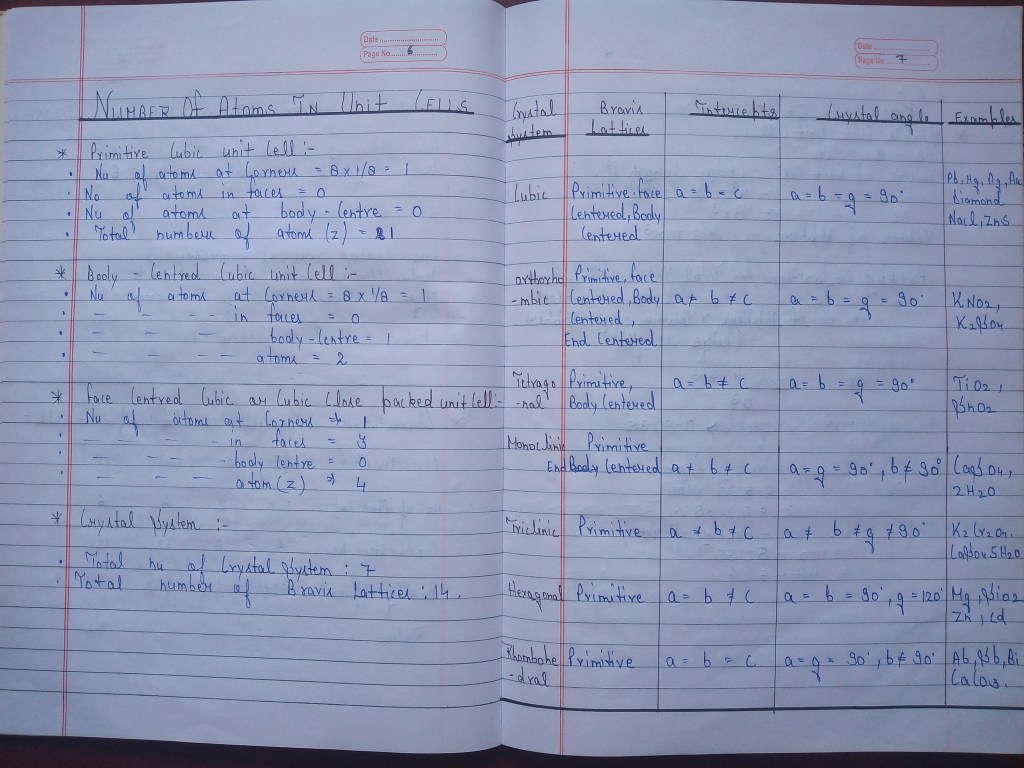 Date
Page No. 6
NUMBER Of Atoms IN Unit CELLS
* Primitive Cubic unit Cell :-
• Nu of atoms at Corners = 8 x 1/8 = 1
• No of atoms in faces = 0
• Nu of atoms at body-Centre = 0
• Total numbers of atoms (z) = 1
* Body - Centred Cubic unit Cell :-
• Nu of atoms at Corners = 8 x 1/8 = 1
• — — — — in faces = 0
• — — — — body-Centre = 1
• — — — — atoms = 2
* Face Centred Cubic or Cubic Close packed unit Cell :-
• Nu of atoms at Corners ⇒ 1
• — — — — in faces = 3
• — — — - body centre = 0
• — — — atom (z) ⇒ 4
* Crystal System :-
• Total nu of Crystal System : 7
• Total number of Bravis Lattices : 14.
Date
Page No. 7
Crystal System
Bravis Lattices
Intercepts
Crystal angle
Examples
Cubic
Primitive. face
Centered, Body
Centered
a = b = c
a = b = g = 90°
Pb, Hg, Ag, Au
Diamond
Nacl, ZnS
orthorho
-mbic
Primitive, face
Centered, Body
Centered,
End Centered
a ≠ b ≠ c
a = b = g = 90°
KNO2,
K2SO4
Tetrago
-nal
Primitive,
Body Centered
a = b ≠ c
a = b = g = 90°
TiO2,
SnO2
Monoclinic
Primitive
End Body Centered
a ≠ b ≠ c
a = g = 90°, b ≠ 90°
CaSO4,
2H2O
Triclinic
Primitive
a ≠ b ≠ c
a ≠ b ≠ g ≠ 90°
K2Cr2O7.
CaSO4 5H2O
Hexagonal
Primitive
a = b ≠ c
a = b = 90°, g = 120°
Mg, SiO2
Zn, Cd
Rhombohe
-dral
Primitive
a = b = c
a = g = 90°, b ≠ 90°
Ab, Sb, Bi
CaCO3.